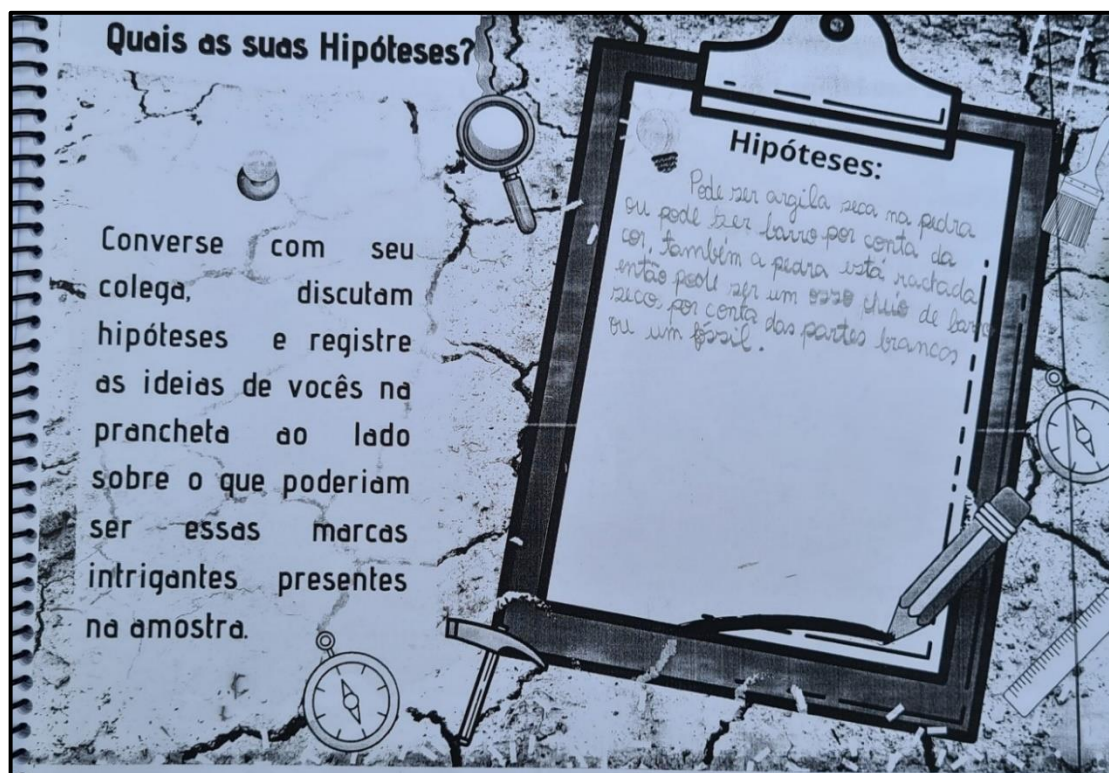 Quais as suas Hipóteses?
Converse com seu
colega, discutam
hipóteses e registre
as ideias de vocês na
prancheta ao lado
sobre o que poderiam
ser essas marcas
intrigantes presentes
na amostra.
Hipóteses:
Pode ser argila seca na pedra
ou pode ser barro por conta da
cor, também a pedra está ractada
então pode ser um osso cheio de barro
seco, por conta das partes brancos
ou um fóssil.